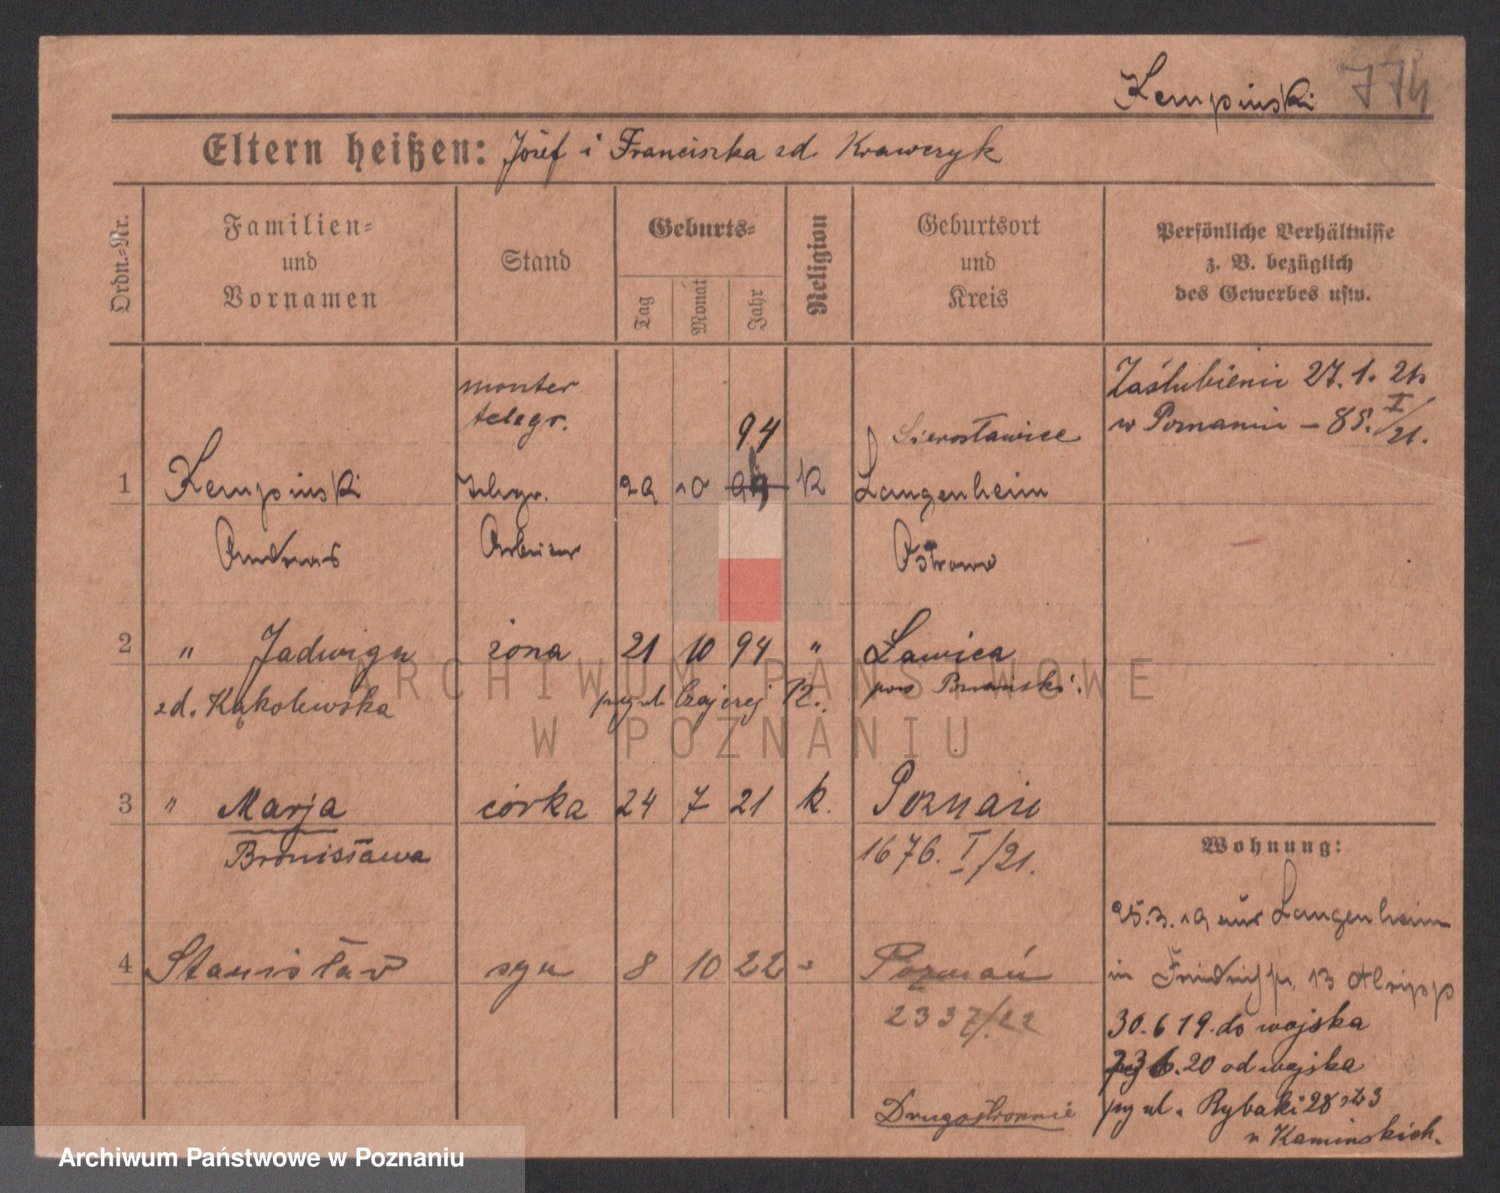 Kempinski 774
Eltern heißen: Józef i Franciszka zd. Krawczyk
Ordn.-Nr.
Familien-
und
Vornamen
Stand
Geburts-
Tag
Monat
Jahr
Religion
Geburtsort
und
Kreis
Persönliche Verhältnisse
z. B. bezüglich
des Gewerbes usw.
monter
telegr.
94
Sierosławice
Zaślubieni 27. 1. 21
w Poznaniu – 85. I/21.
1 Kempinski Telegr. 29 10 K Langenheim
Andreas Arbeiter Ostrowo
2 " Jadwiga żona 21 10 94 " Ławica
zd. Kąkolewska K. pow Poznański.
3 " Marja córka 24 7 21 k. Poznań
Bronisława 1676. I/21.
Wohnung:
25.3.19 aus Langenheim
4 Stanisław syn 8 10 22 " Poznań
in 13
2337/22
30.6 19. do wojska
6. 20 od wojska
Drugostronnie
ul. Rybaki 28 3
u Kaminskich.
ARCHIWUM PAŃSTWOWE
W POZNANIU
Archiwum Państwowe w Poznaniu